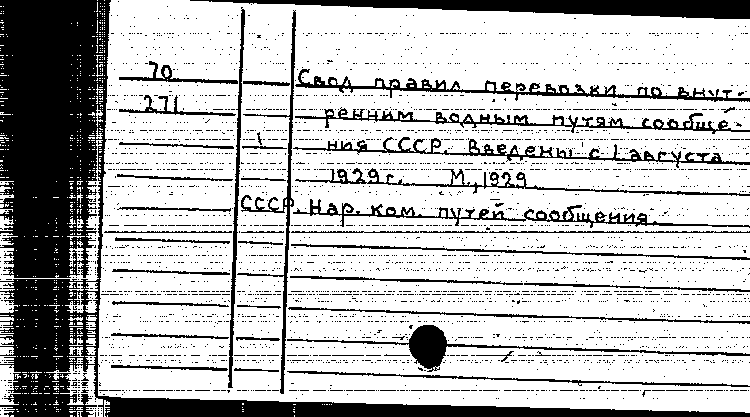 70 Свод правил перевозки по внут-
271 ренним водным путям сообще-
ния СССР. Введены с 1 августа
1929 г. М., 1929.
СССР. Нар. ком. путей сообщения.